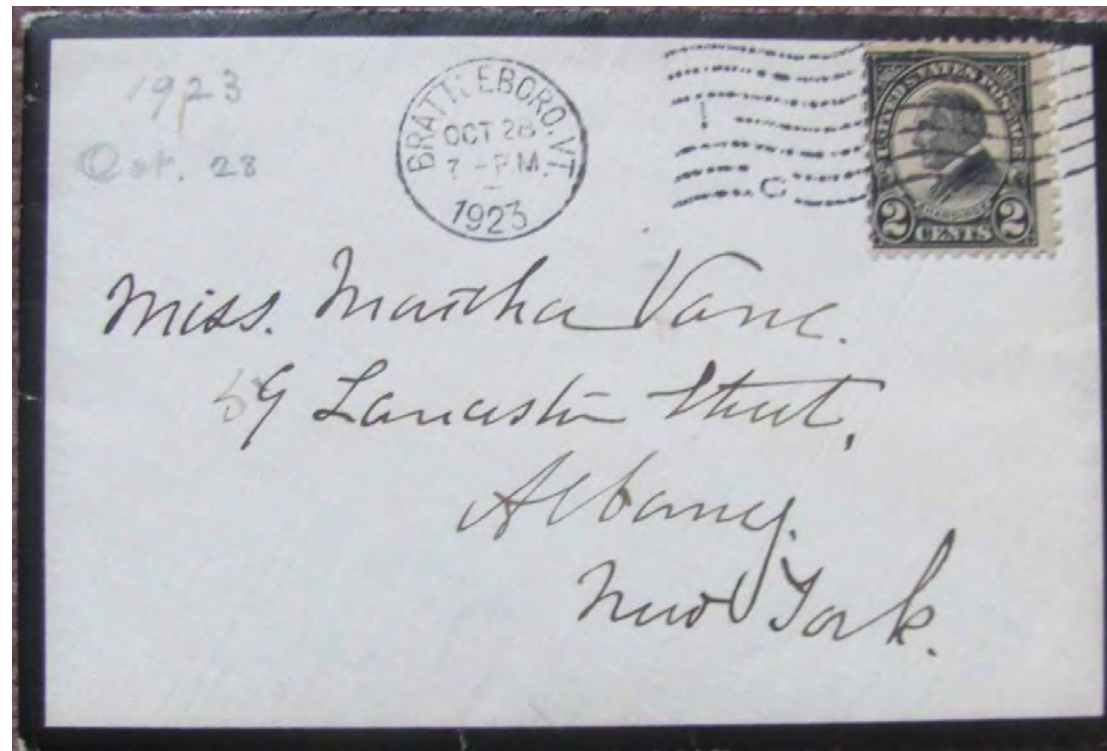 1923
Oct. 28
BRATTLEBORO, VT.
OCT 28
7 - P.M.
1923
UNITED STATES POSTAGE
HARDING
2 CENTS 2
Miss. Martha Vane.
59 Lancaster Street,
Albany.
New York.